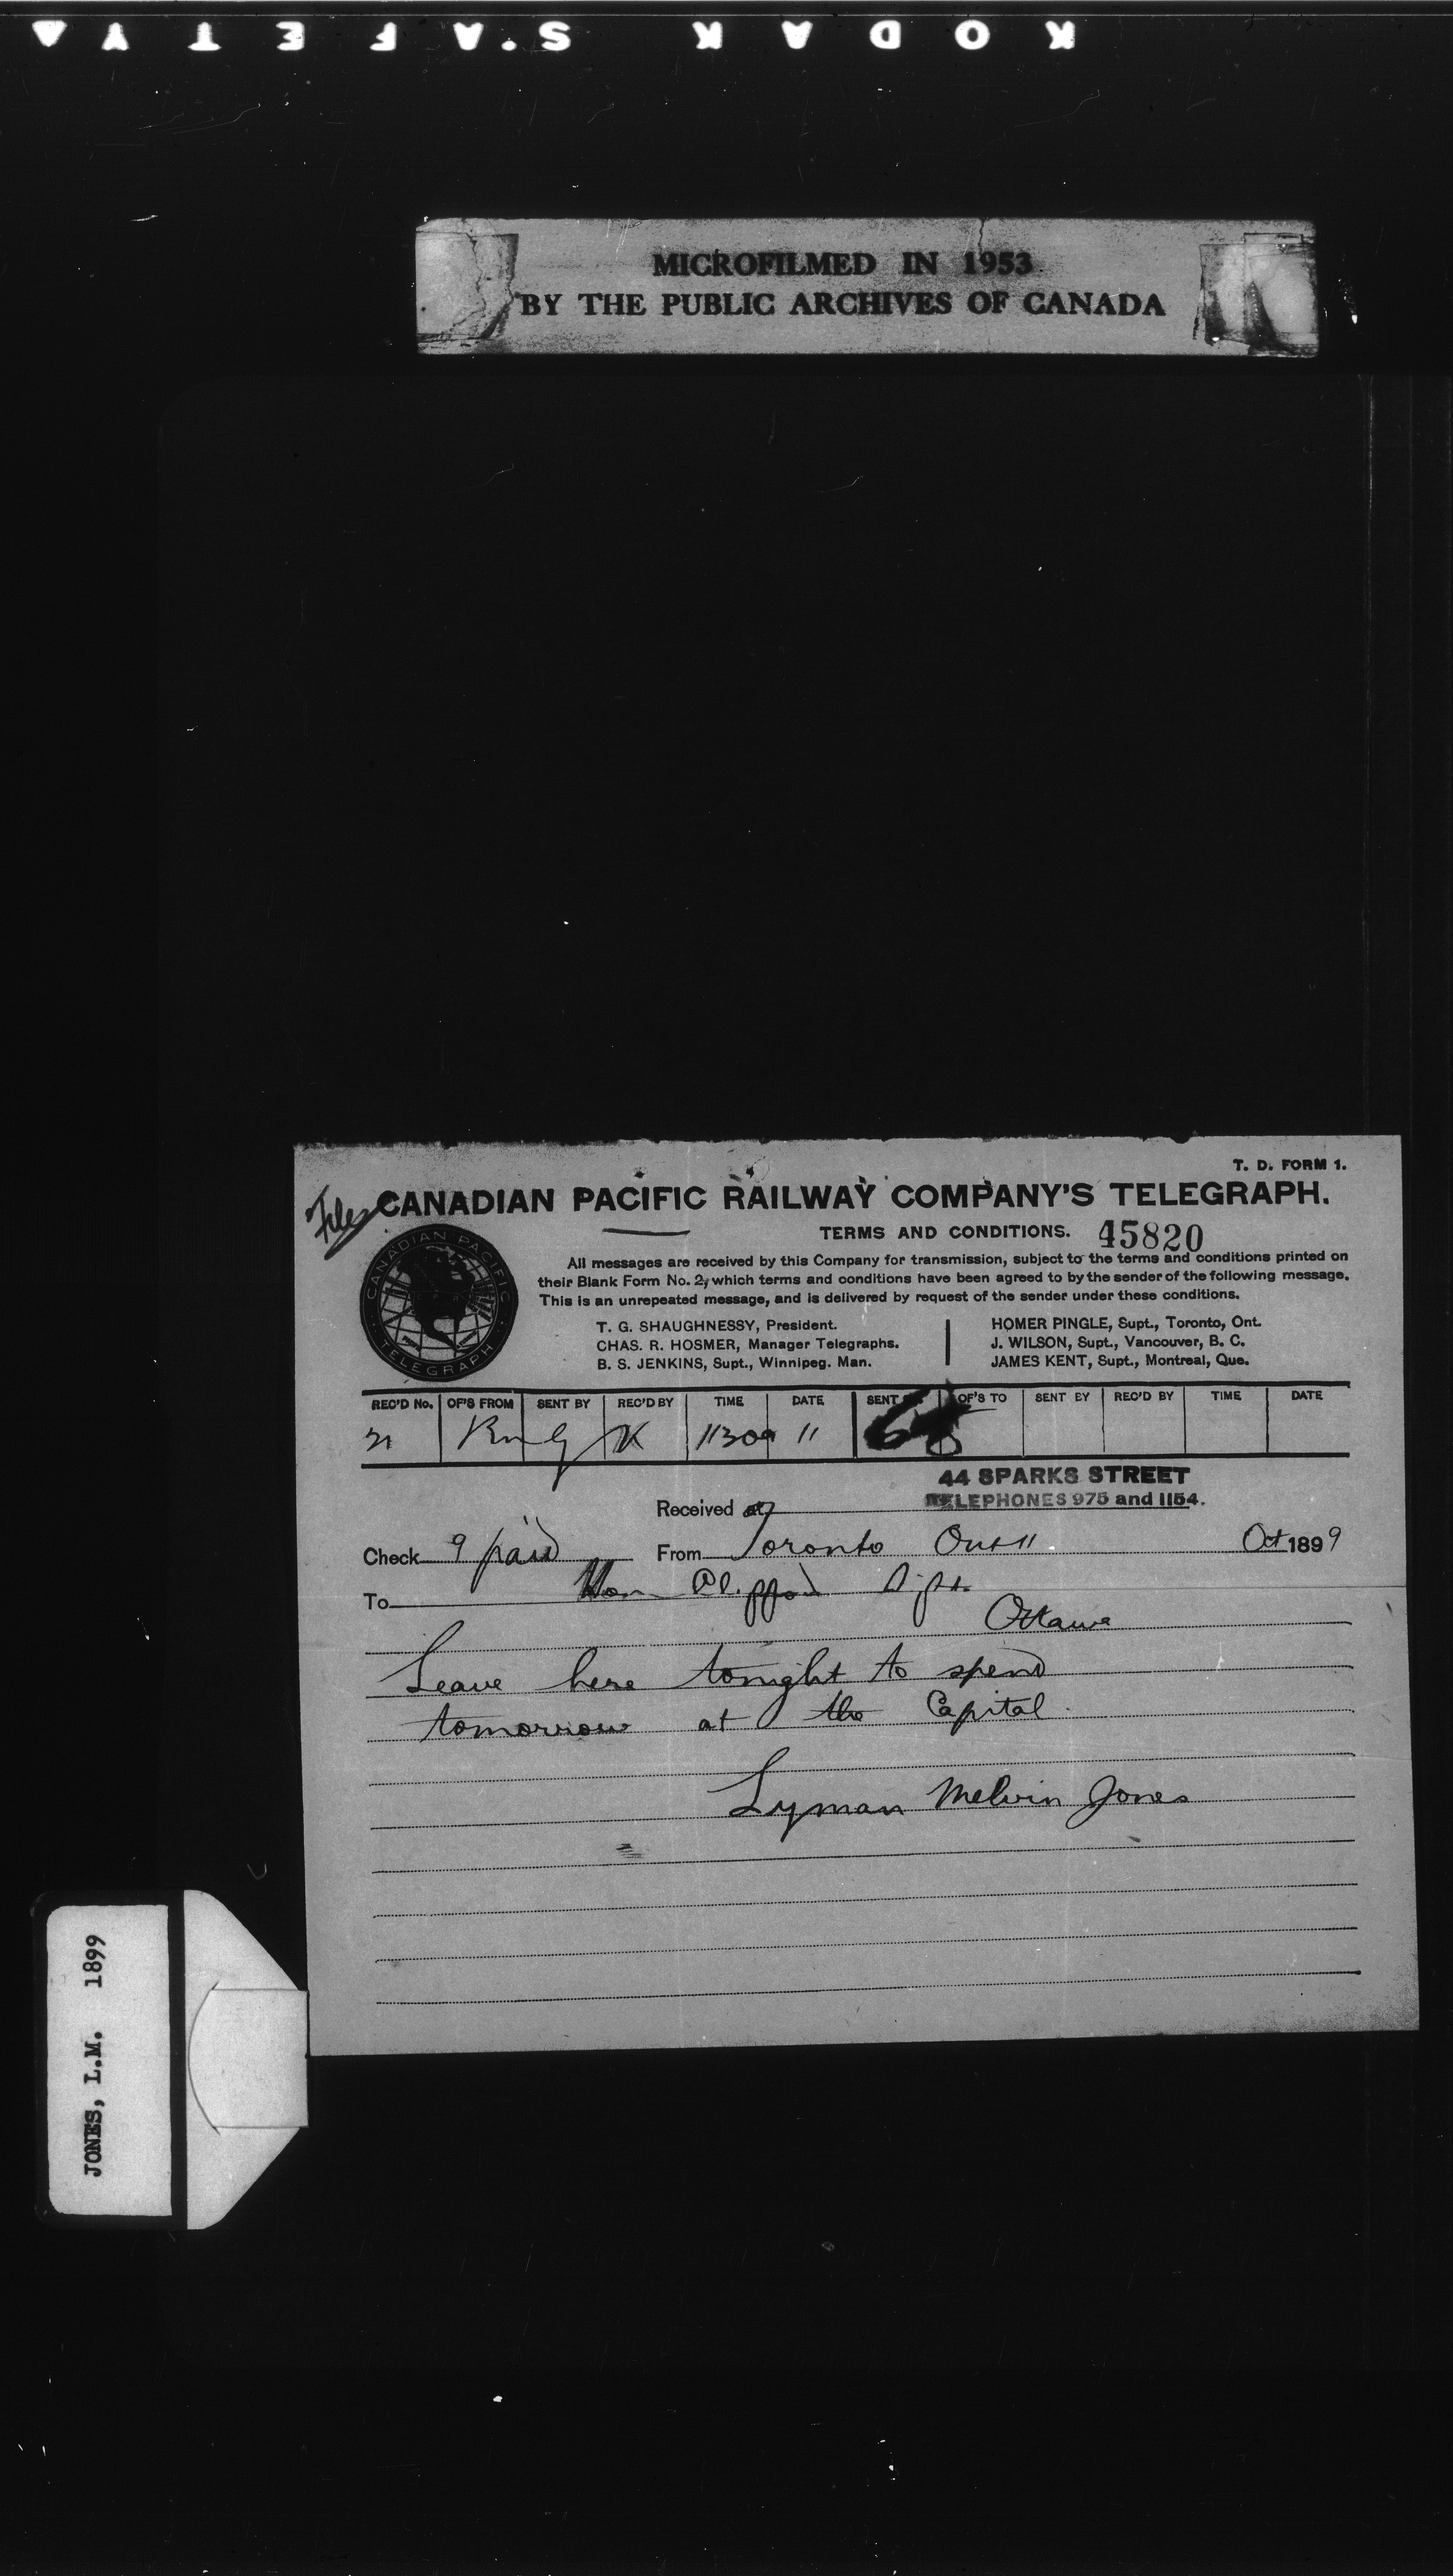 KODAK S.A.F.E.T.Y
MICROFILMED IN 1953
BY THE PUBLIC ARCHIVES OF CANADA
T. D. FORM 1.
File
CANADIAN PACIFIC RAILWAY COMPANY'S TELEGRAPH.
TERMS AND CONDITIONS. 45820
CANADIAN PACIFIC TELEGRAPH
All messages are received by this Company for transmission, subject to the terms and conditions printed on
their Blank Form No. 2, which terms and conditions have been agreed to by the sender of the following message.
This is an unrepeated message, and is delivered by request of the sender under these conditions.
T. G. SHAUGHNESSY, President.
CHAS. R. HOSMER, Manager Telegraphs.
B. S. JENKINS, Supt., Winnipeg. Man.
HOMER PINGLE, Supt., Toronto, Ont.
J. WILSON, Supt., Vancouver, B. C.
JAMES KENT, Supt., Montreal, Que.
REC'D No. OF'S FROM SENT BY REC'D BY TIME DATE SENT OF'S TO SENT BY REC'D BY TIME DATE
K 1130a 11
44 SPARKS STREET
Received at TELEPHONES 975 and 1154.
Check 9 paid From Toronto Ont 11 Oct 1899
To Hon Clifford Sifton
Ottawa
Leave here tonight to spend
tomorrow at the Capital.
Lyman Melvin Jones
JONES, L.M. 1899